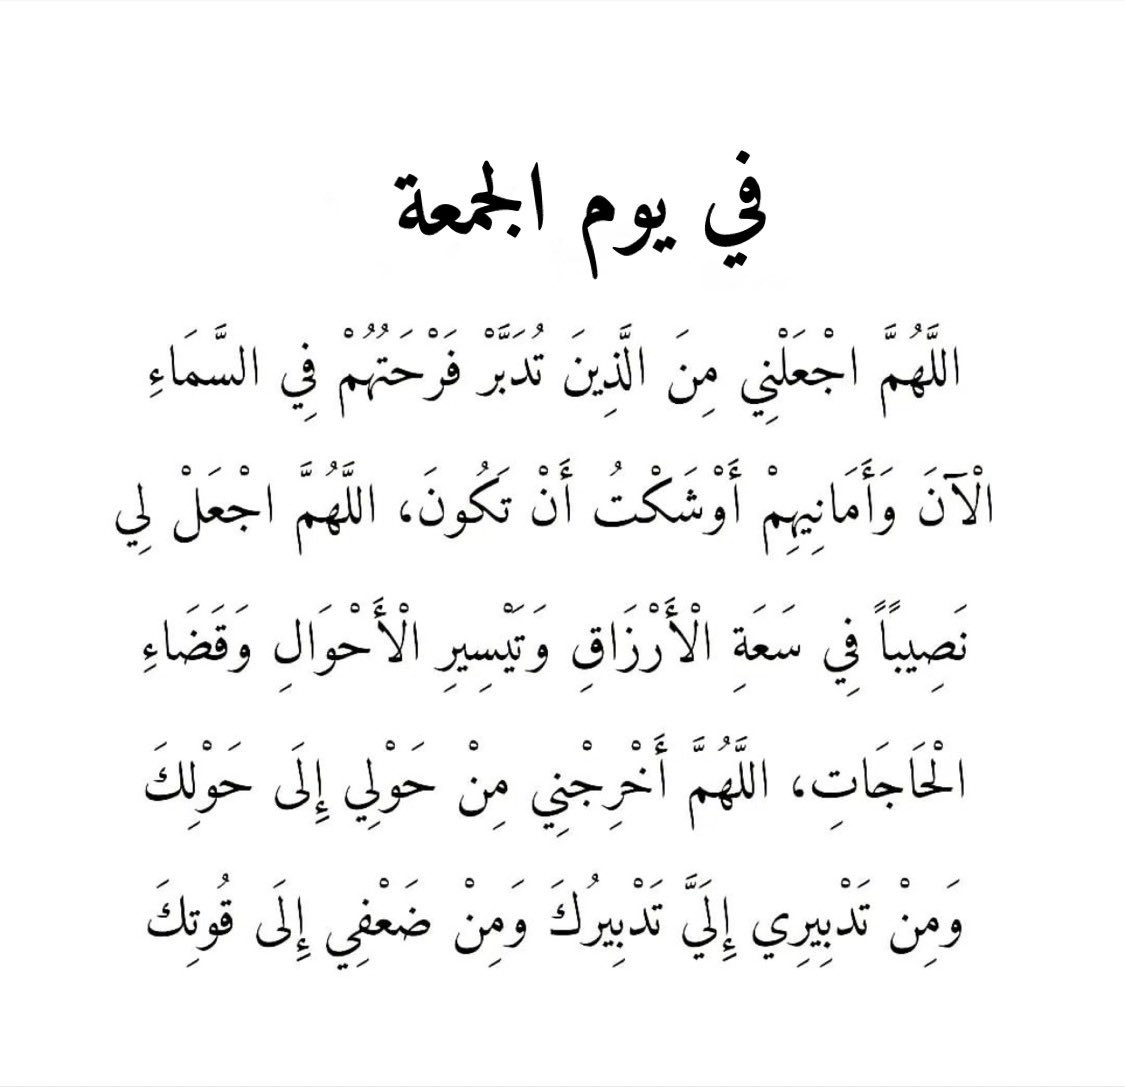 في يوم الجمعة
اللَّهُمَّ اجْعَلْنِي مِنَ الَّذِينَ تُدَبَّرْ فَرْحَتُهُمْ فِي السَّمَاءِ
الْآنَ وَأَمَانِيهِمْ أَوْشَكْتُ أَنْ تَكُونَ، اللَّهُمَّ اجْعَلْ لِي
نَصِيباً فِي سَعَةِ الْأَرْزَاقِ وَتَيْسِيرِ الْأَحْوَالِ وَقَضَاءِ
الْحَاجَاتِ، اللَّهُمَّ أَخْرِجْنِي مِنْ حَوْلِي إِلَى حَوْلِكَ
وَمِنْ تَدْبِيرِي إِلَيَّ تَدْبِيرُكَ وَمِنْ ضَعْفِي إِلَى قُوتِكَ